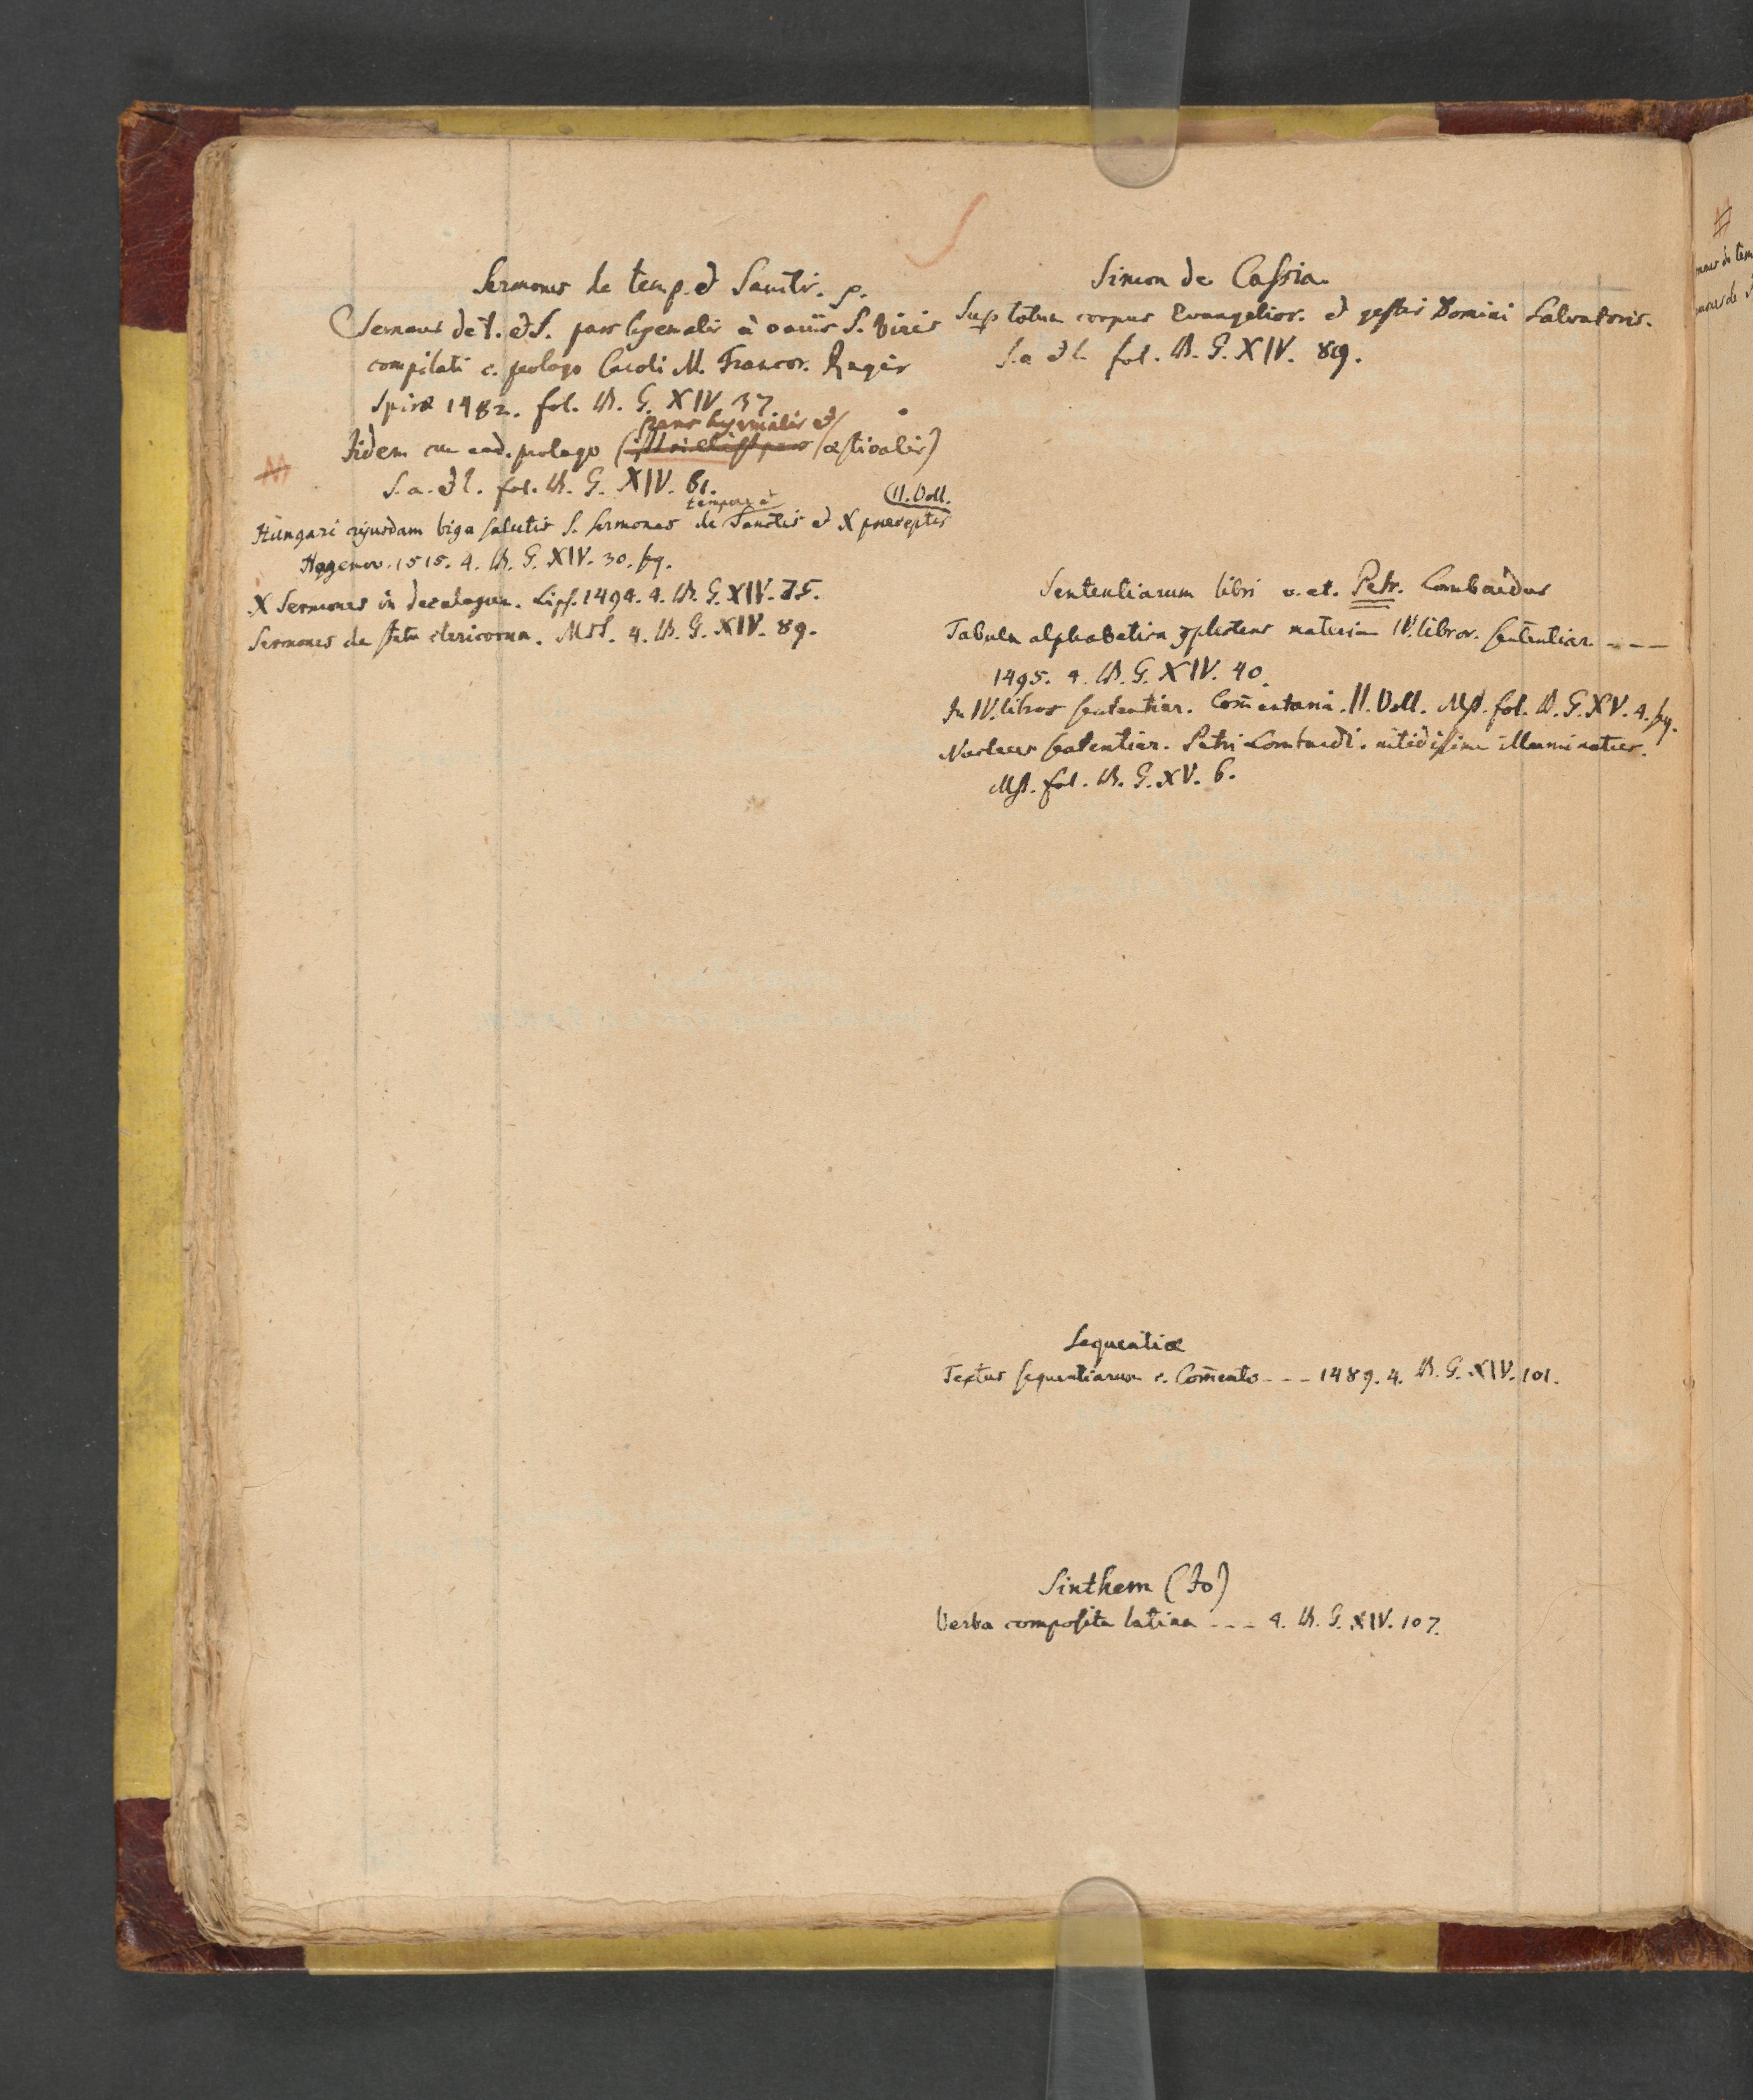 Sermones de temp. et Sanctis. p.
Sermones de t. et S. pars hyemalis à variis S. Viris
compilati c. prologo Caroli M. Francor. Regis
Spiræ 1482. fol. Th. G. XIV. 37
pars hyemalis et
Iidem cum eod. prologo ( æstivalis)
S. a. et l. fol. Th. G. XIV. 61.
tempore et (II. Voll.
Hungari cujusdam biga salutis s. sermones de Sanctis et X præceptis
Hagenov. 1515. 4. Th. G. XIV. 30. sq.
X Sermones in decalogum. Lips. 1494. 4. Th. G. XIV. 75.
Sermones de statu clericorum. MSS. 4. Th. G. XIV. 89.
Simon de Cassia
Sup totum corpus Evangelior. et gestis Domini Salvatoris.
S. a et l. fol. Th. G. XIV. 89.
Sententiarum libri v. et. Petr. Lombardus
Tabula alphabetica materiam IV. libror. sententiar. - - -
1495. 4. Th. G. XIV. 40.
In IV. libros sententiar. Com̃entarii. II. Voll. Mst. fol. Th. G. XV. 4. sq.
sententiar. Petri Lombardi. nitidissime illuminatus.
Mst. fol. Th. G. XV. 6.
Sequentiæ
Textus sequentiarum c. Com̃ento - - - 1489. 4. Th. G. XIV. 101.
Sinthem (Jo)
Verba composita latina - - - 4. Th. G. XIV. 107.